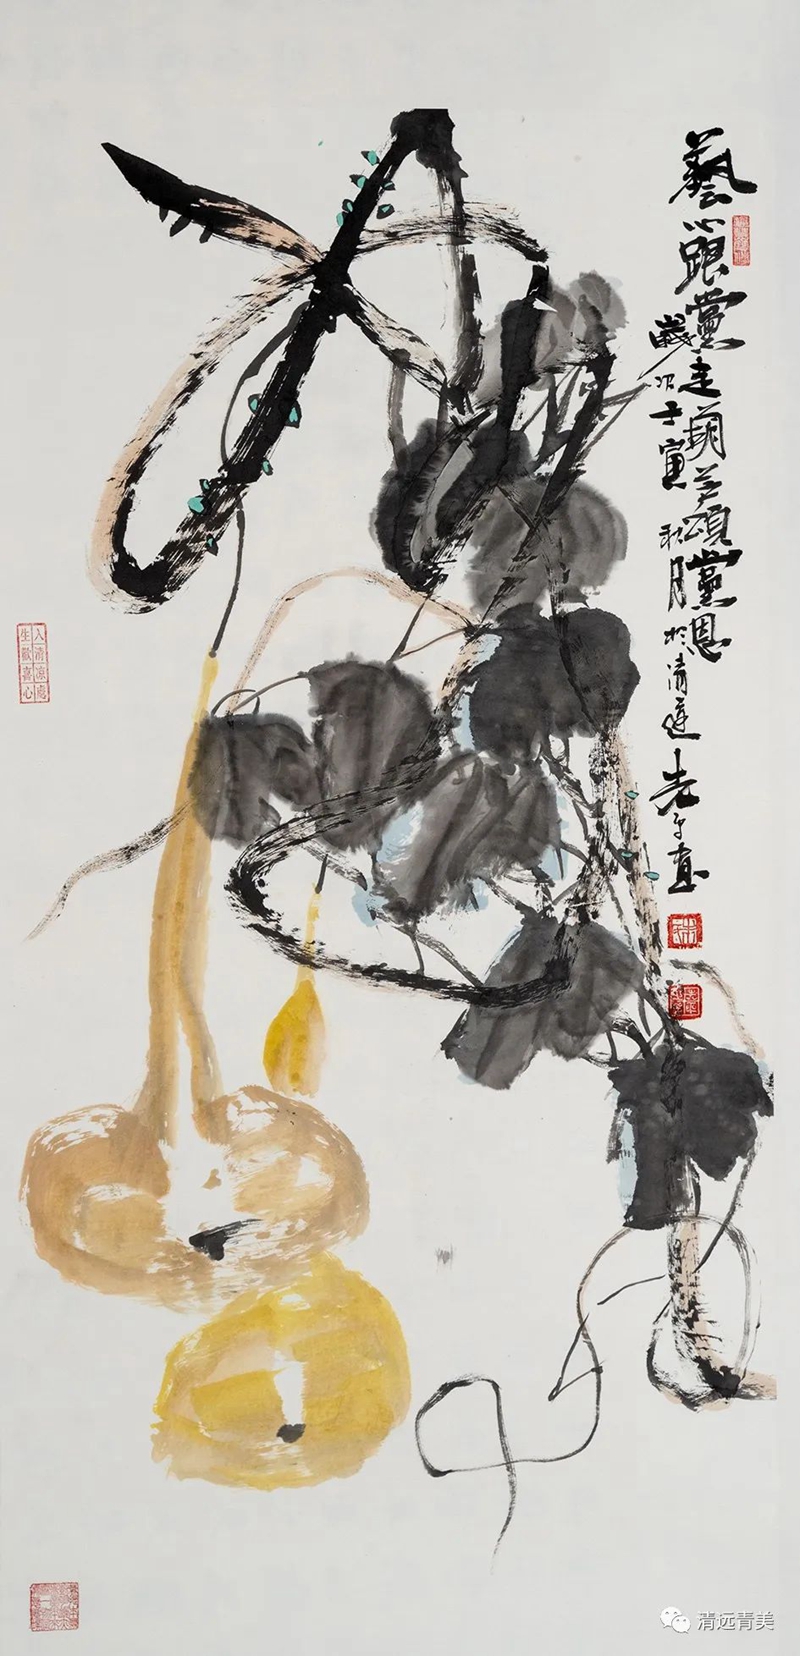 藝心跟黨走葫芦頌黨恩
歲次壬寅秋月於清遠
入清涼處
生歡喜心
清远青美